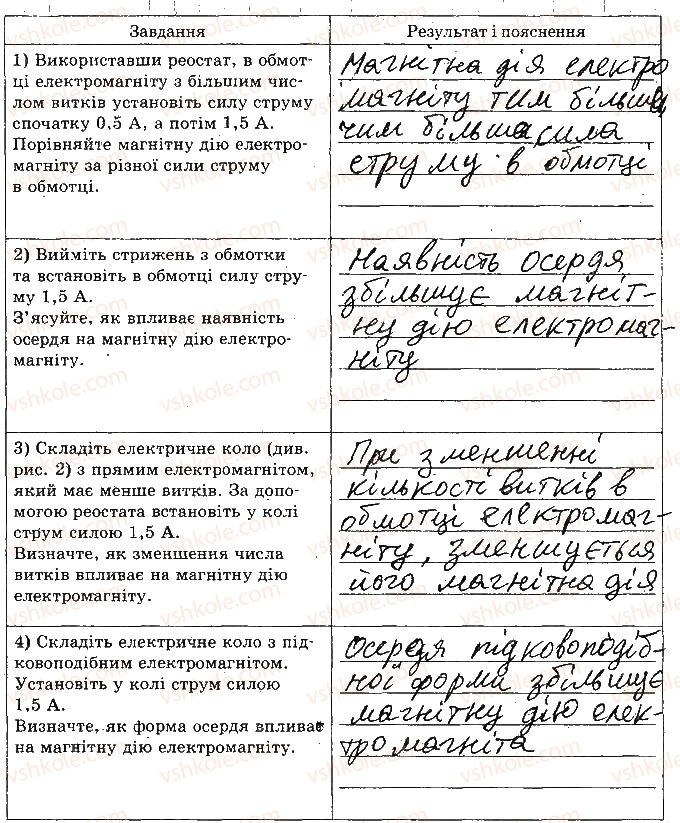 Завдання
Результат і пояснення
1) Використавши реостат, в обмот-
ці електромагніту з більшим чис-
лом витків установіть силу струму
спочатку 0,5 А, а потім 1,5 А.
Порівняйте магнітну дію електро-
магніту за різної сили струму
в обмотці.
Магнітна дія електро
магніту тим більша,
чим більша сила
струму в обмотці
2) Вийміть стрижень з обмотки
та встановіть в обмотці силу стру-
му 1,5 А.
З'ясуйте, як впливає наявність
осердя на магнітну дію електро-
магніту.
Наявність осердя
збільшує магніт-
ну дію електромаг-
ніту
3) Складіть електричне коло (див.
рис. 2) з прямим електромагнітом,
який має менше витків. За допо-
могою реостата встановіть у колі
струм силою 1,5 А.
Визначте, як зменшення числа
витків впливає на магнітну дію
електромагніту.
При зменшенні
кількості витків в
обмотці електромаг-
ніту, зменшується
його магнітна дія
4) Складіть електричне коло з під-
ковоподібним електромагнітом.
Установіть у колі струм силою
1,5 А.
Визначте, як форма осердя впливає
на магнітну дію електромагніту.
Осердя підковоподіб-
ної форми збільшує
магнітну дію елек-
тромагніта
vshkole.com